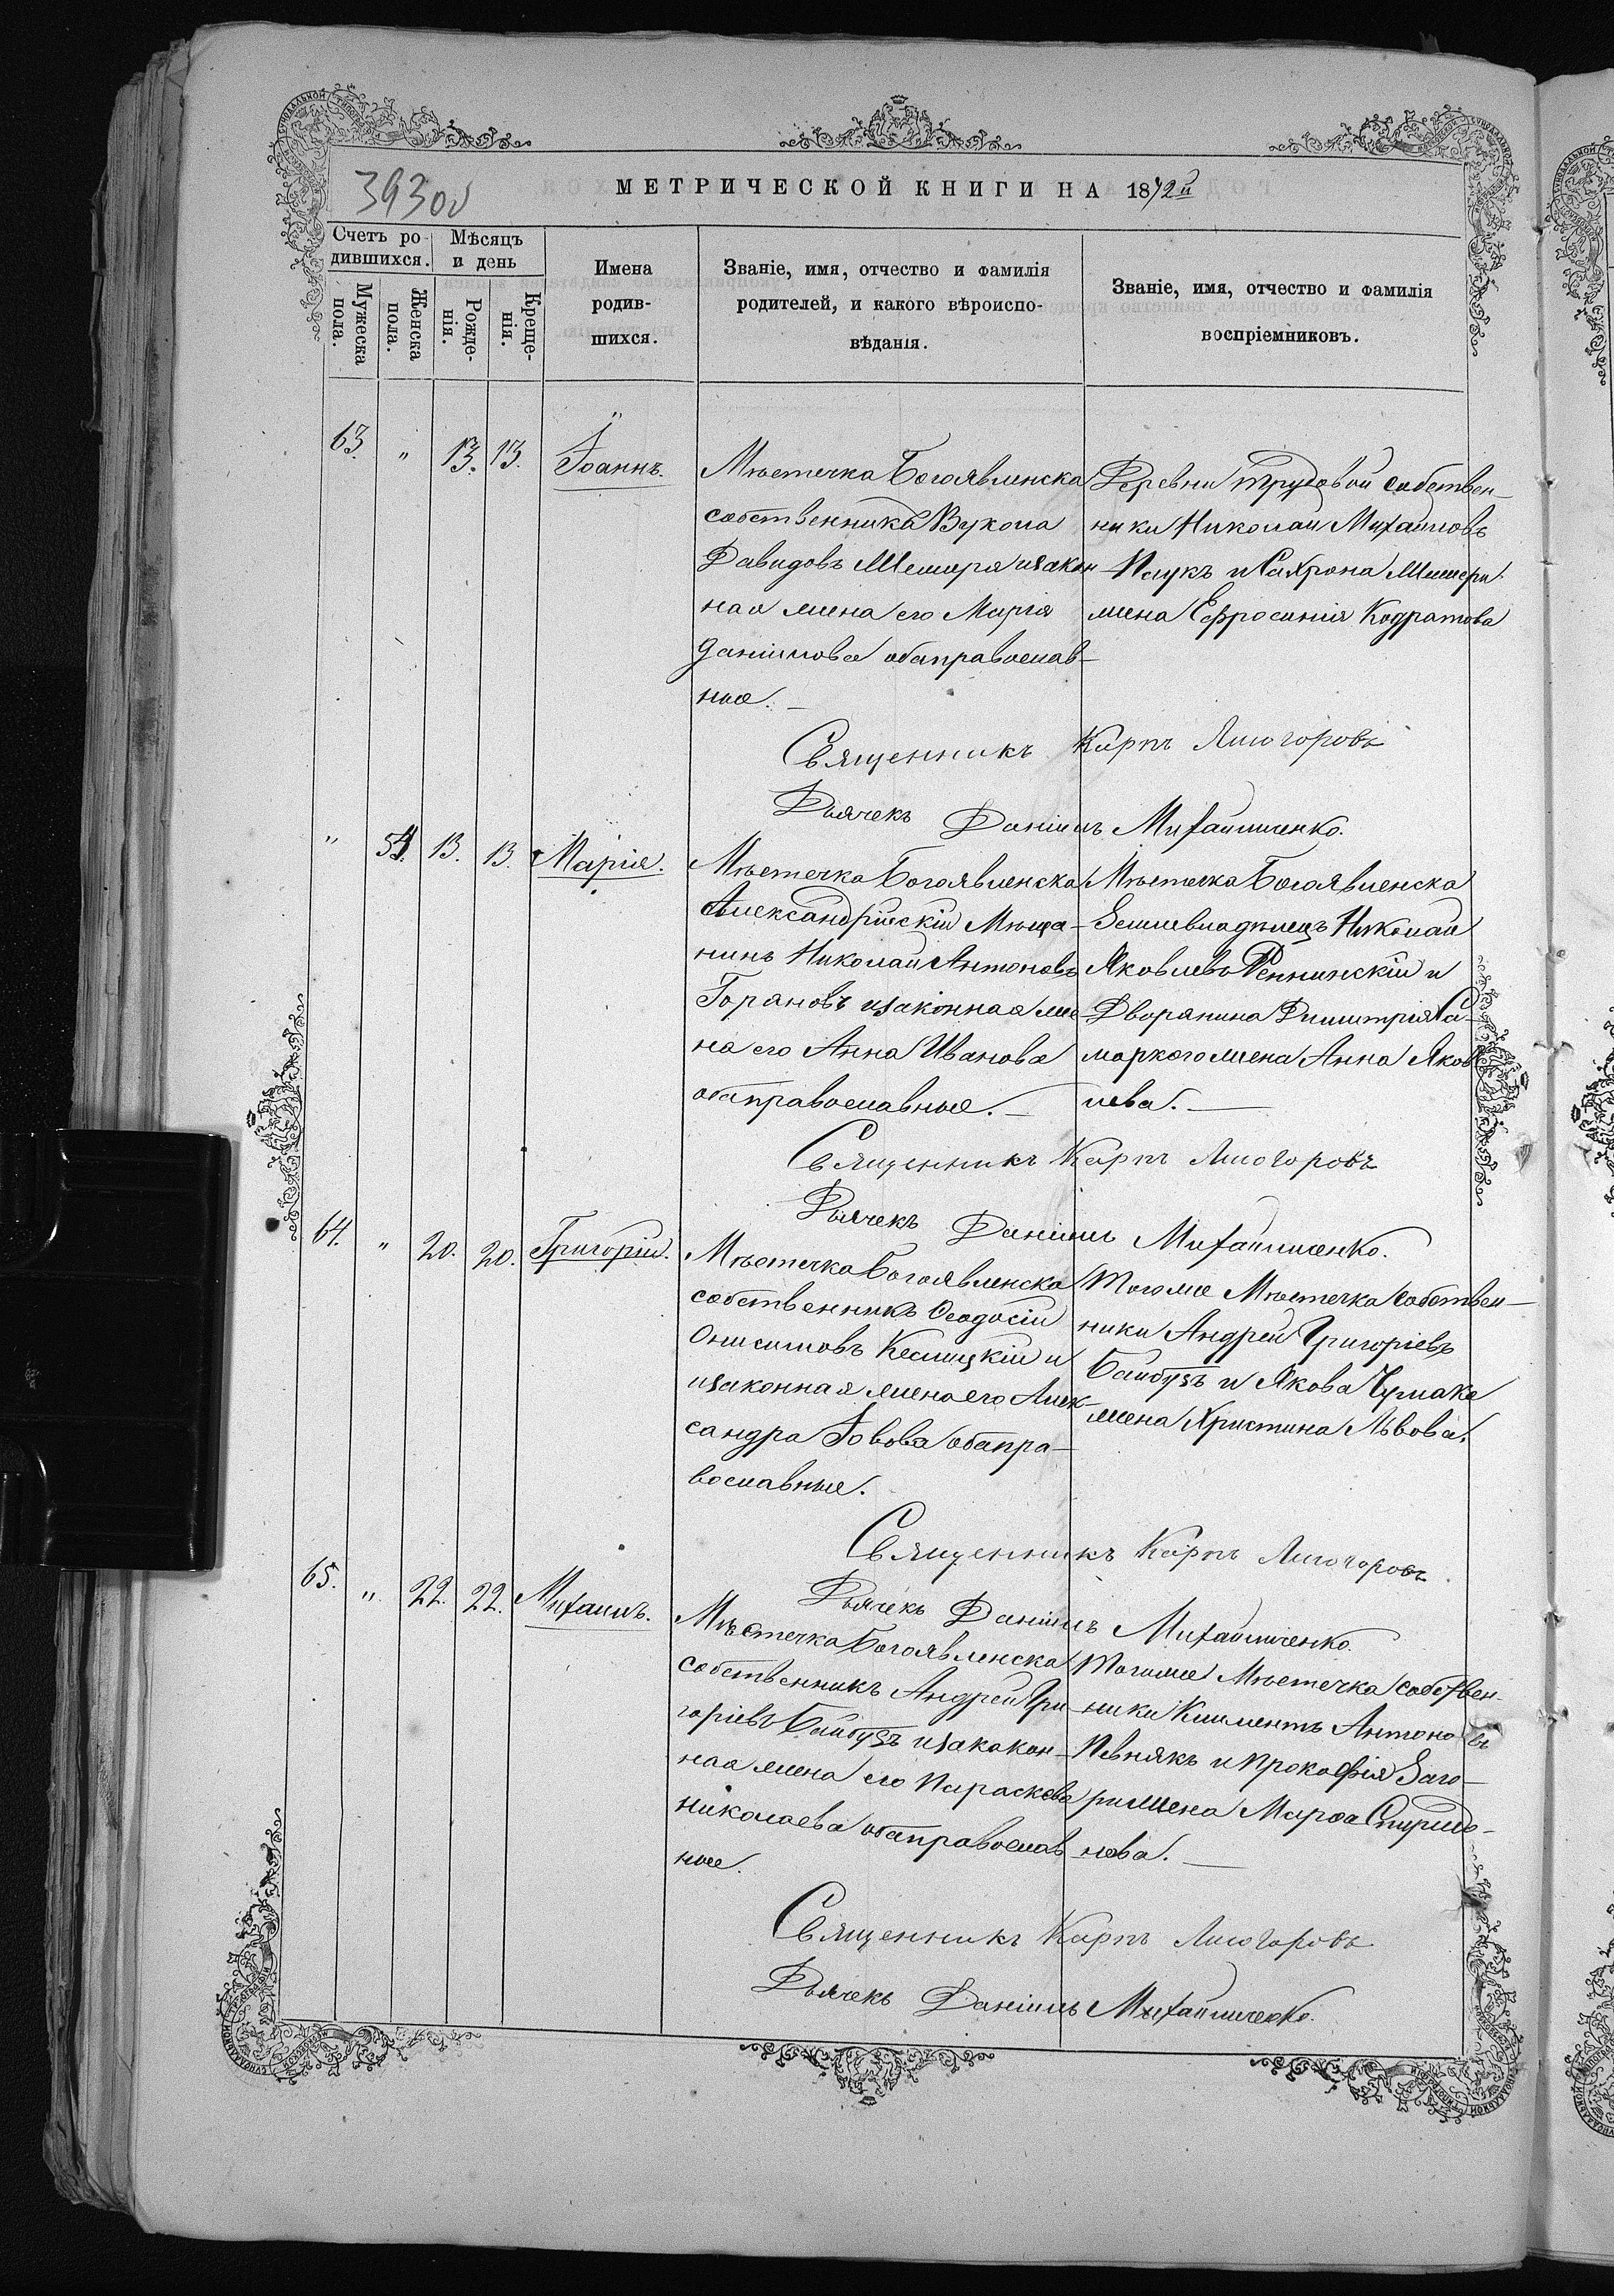 3930
МЕТРИЧЕСКОЙ КНИГИ НА 1872й
Счетъ ро-
дившихся.
Мѣсяцъ
и день
Мужеска
пола.
Женска
пола.
Рожде-
нія.
Креще-
нія.
Имена
родив-
шихся.
Званіе, имя, отчество и фамилія
родителей, и какого вѣроиспо-
вѣданія.
Званіе, имя, отчество и фамилія
воспріемниковъ.
63. " 13. 13. Іоаннъ.
Мѣстечка Богоявленска
собственника Вукола
Давидовъ Шемшра изакон
ная жена его Марія
Даніилова обаправослав-
ные.
Деревни Трудовой собствен-
ники Николай Михайловъ
Паукъ и Сафрона
жена Ефросинія Кодратова
Священникъ Карпъ Лисогоровъ
Дьячекъ Даніилъ Михайличенко.
" 54. 13. 13. Марія.
Мѣстечка Богоявленска
Александрійскій Мѣща-
нинъ Николай Антоновъ
Горяновъ изаконная же-
на его Анна Иванова
обаправославные.
Мѣстечка Богоявленска
Землевладѣлецъ Николай
Яковлевъ Реннинскій и
Дворянина Димитрія Са-
марского жена Анна Яков
лева.
Священникъ Карпъ Лисогоровъ
Дьячекъ Даніилъ Михайличенко.
64. " 20. 20. Григорій.
Мѣстечка Богоявленска
собственникъ Ѳеодосій
Онисимовъ Кеслицкій и
изаконная жена его Алек-
сандра Іовова обапра-
вославные.
Тогоже Мѣстечка собствен-
ники Андрей Григоріевъ
Байбузъ и Якова Чумака
жена Христина Львова.
Священникъ Карпъ Лисогоровъ
Дьячекъ Даніилъ Михайличенко.
65. " 22. 22. Михаилъ.
Мѣстечка Богоявленска
собственникъ Андрей Гри
горіевъ Байбузъ изакакон-
ная жена его Параскева
Николаева обаправослав
ные.
Тогоже Мѣстечка собствен-
ники Климентъ Антоновъ
Певнякъ и Прокофія Заго-
ри жена Марѳа Спиридо-
нова.
Священникъ Карпъ Лисогоровъ
Дьячекъ Даніилъ Михайличенко.